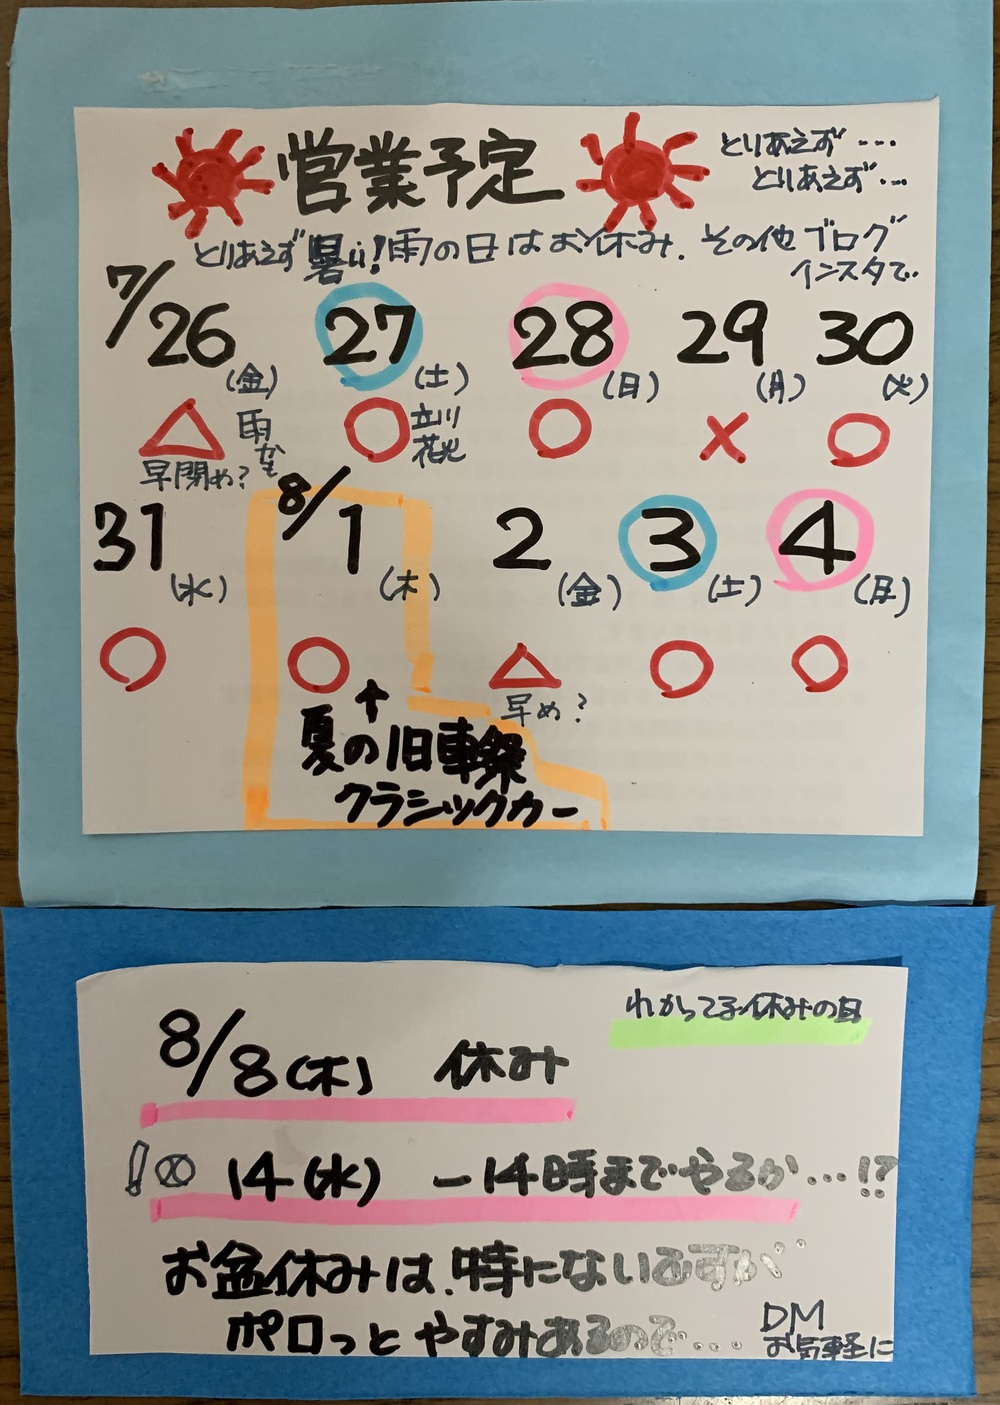 営業予定
とりあえず・・・
とりあえず・・・
とりあえず暑い!雨の日はお休み. その他ブログ
インスタで・・
7/26 27 28 29 30
(金) (土) (日) (月) (火)
△ 雨かも ○ 立川花火 ○ × ○
早閉め?
31 8/1 2 3 4
(水) (木) (金) (土) (日)
○ ○ △ ○ ○
早め?
↑
夏の旧車祭
クラシックカー
わかってる休みの日
8/8(木) 休み
!⊗ 14(水) ー14時までやるか・・・!?
お盆休みは、特にないですが・・
ポロっとやすみあるので・・・・
DM
お気軽に